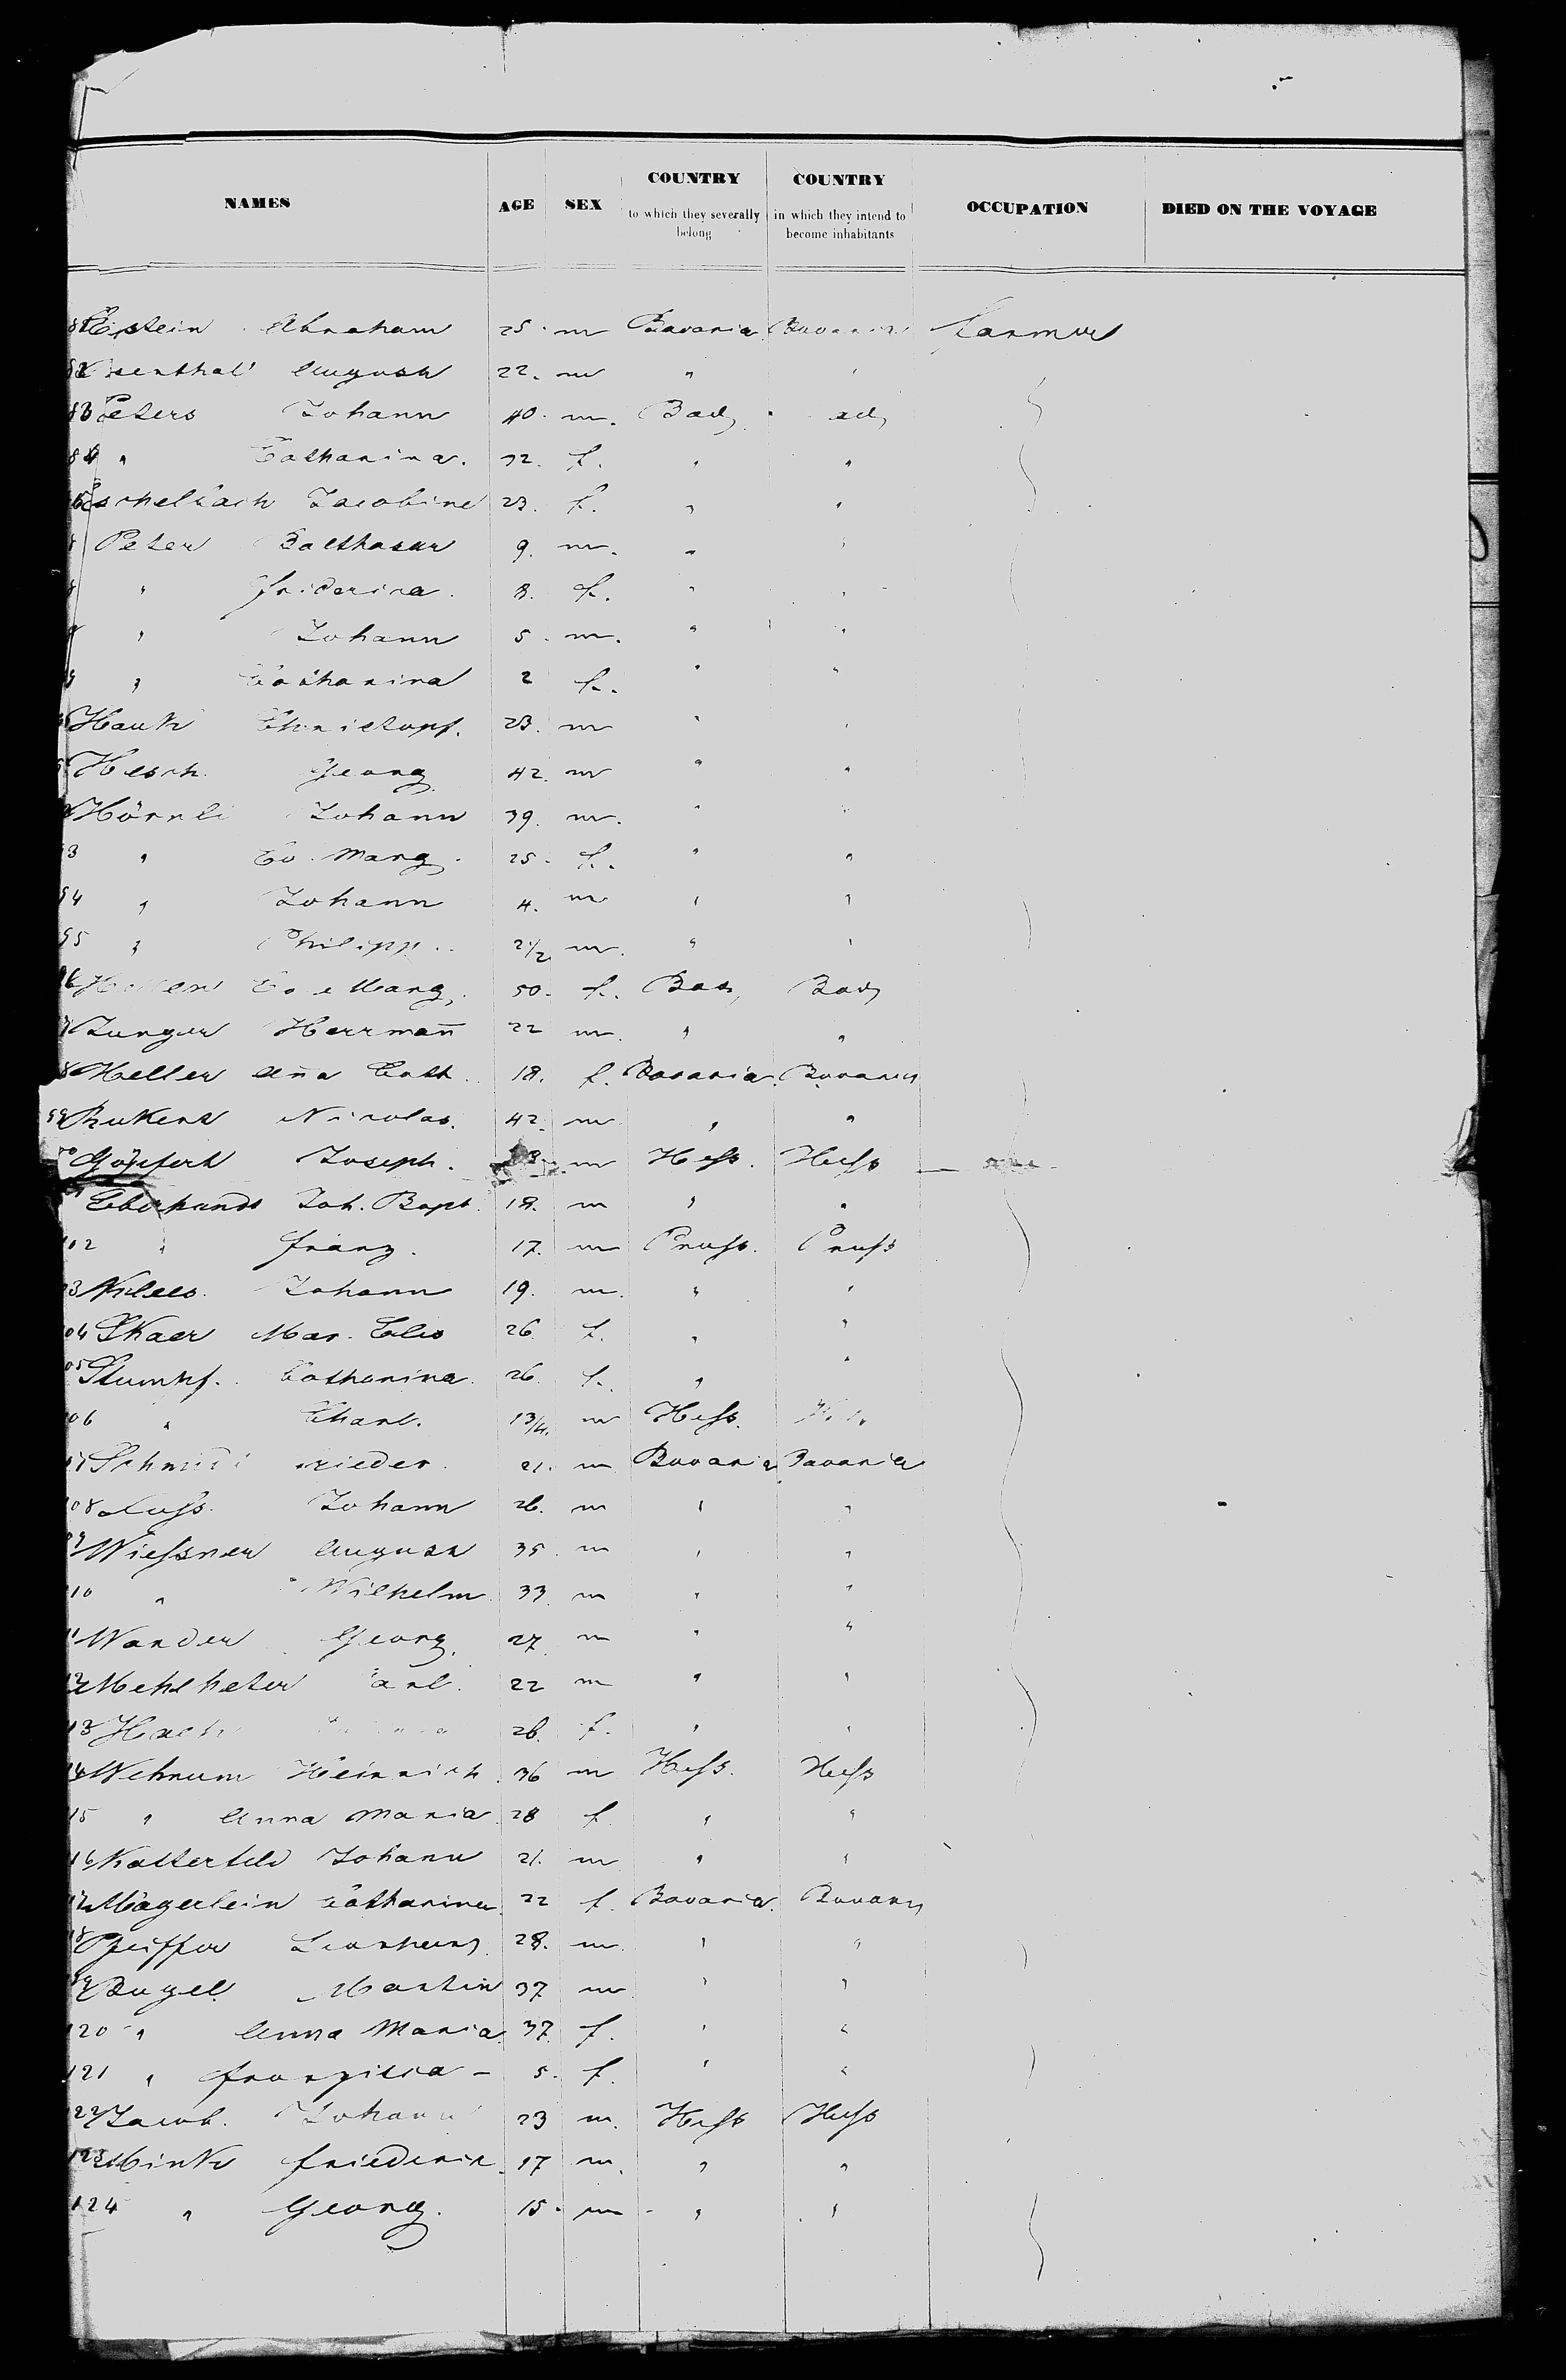 NAMES AGE SEX COUNTRY to which they severally belong COUNTRY in which they intend to become inhabitants OCCUPATION DIED ON THE VOYAGE
Epstein Abraham 25. m Bavaria Bavaria farmer
August 22. m " "
83 Peters Johann 40. m. Bad,
84 " Catharina. 32. f. " "
Eschelbach Jacobine 23. f. " "
Peter Balthasar 9. m. " "
" Friderica. 8. f. " "
" Johann 5. m. " "
" Catharina 2 f. " "
Hauk Christopf. 23. m " "
Hesch. Georg 42. m " "
Hörnli Johann 39. m. " "
93 " Marg. 25. f. " "
94 " Johann 4. m " "
95 " Philipp. 2 1/2 m. " "
96 Marg. 50. f. Bad, Bad,
Junger Herrmañ 22 m. " "
Heller Aña Cath. 18. f. Bavaria Bavaria
99 Rukert Nicolas. 42. m " "
Joseph. m Hess. Hess
Eberhardt Joh. Bapt. 18. m " "
102 " Franz. 17. m Pruss. Pruss
Johann 19. m. " "
04 Skaer Mar. Elis 26. f. " "
05 Stumpf. Catharina. 26. f. " "
06 " Charl. 1 3/4. m Hess.
Schmidt 21. m Bavaria Bavaria
108 Johann 26. m " "
09 Wiessner August 35. m " "
110 " Wilhelm 33. m " "
Wander Georg. 27 m " "
Carl. 22 m " "
13 26. f. " "
14 Wehrum Heinrich. 36 m Hess. Hess
15 " Anna Maria. 28 f. " "
16 Katterfeld Johann 21. m " "
17 Mägerlein Catharina 22 f. Bavaria. Bavaria
18 Pfeiffer Leonhard 28. m. " "
Martin 37 m " "
120 " Anna Maria. 37. f. " "
121 " Franziska - 5. f. " "
122 Jacob. Johann 23 m. Hess Hess
123 Mink Friederic 17 m. " "
124 " Georg. 15. m " "